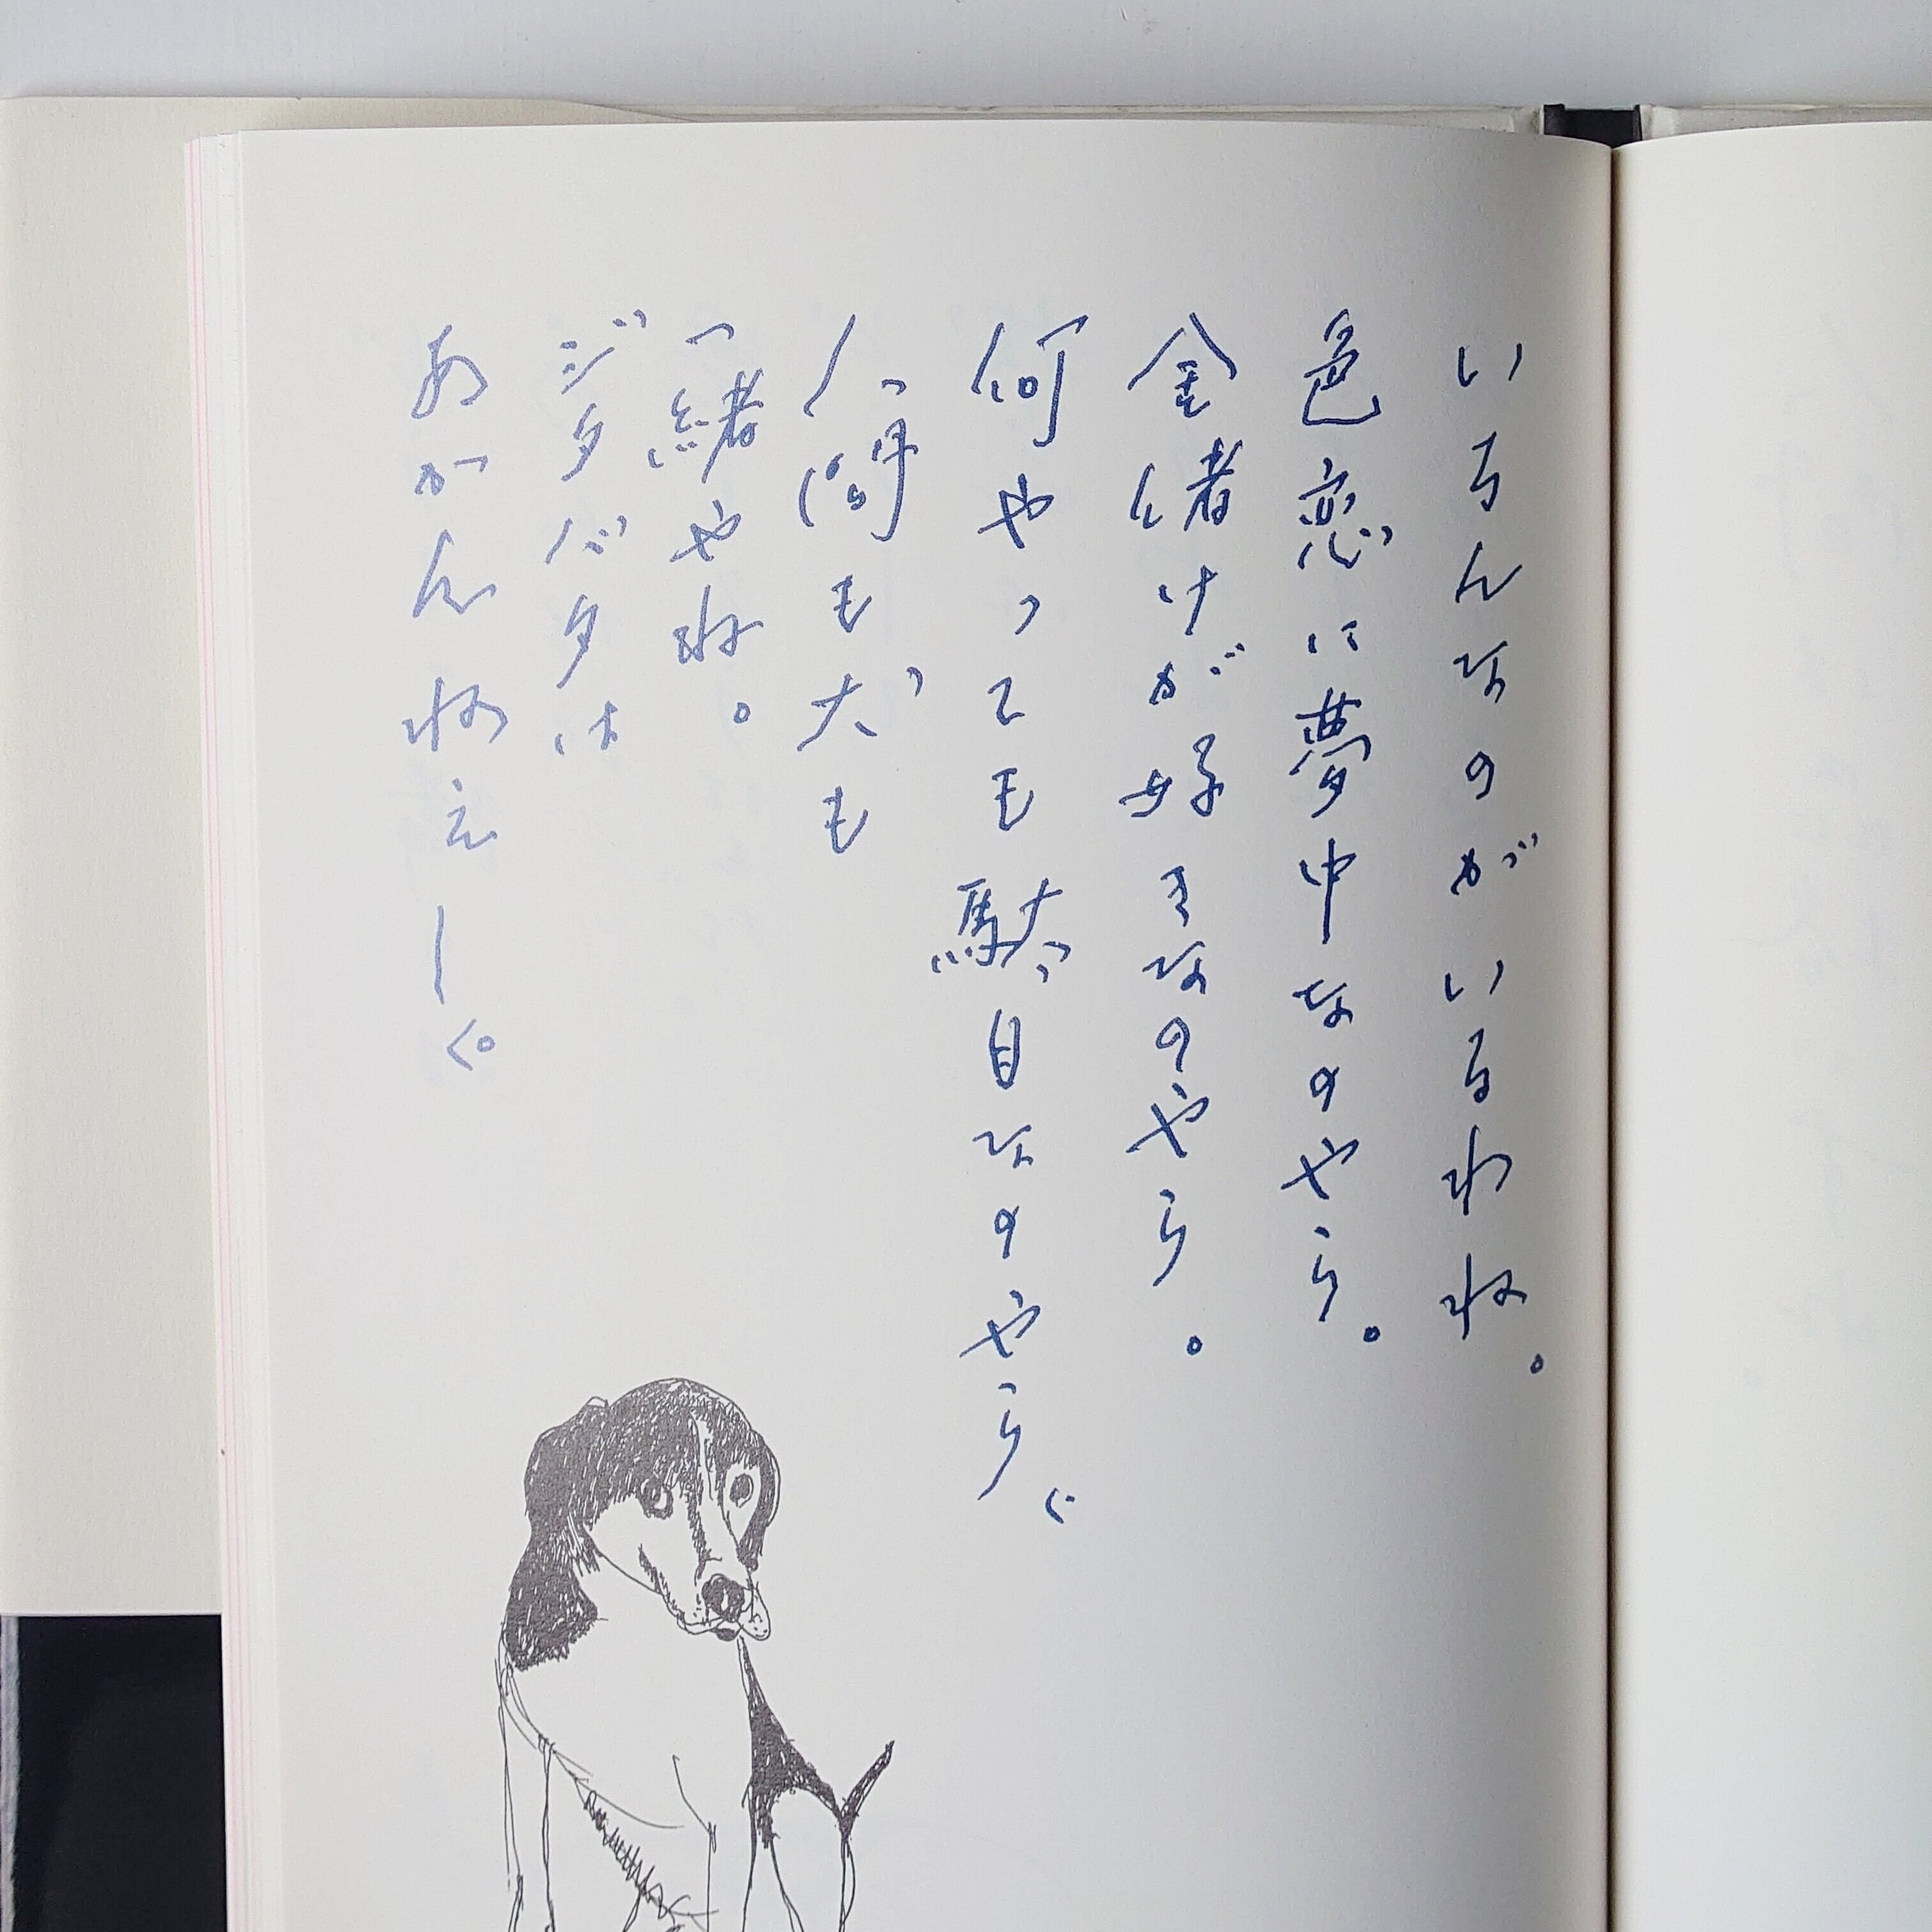 いろんなのがいるわね。
色恋に夢中なのやら。
金儲けが好きなのやら。
何やっても駄目なのやら。
人間も犬も
一緒やね。
ジタバタは
あかんねえー。